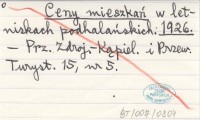 Ceny mieszkań w let-
niskach podhalańskich. 1926.
— Prz. Zdroj.-Kąpiel. i Przew.
Turyst. 15, nr 5.
BT/007/0309